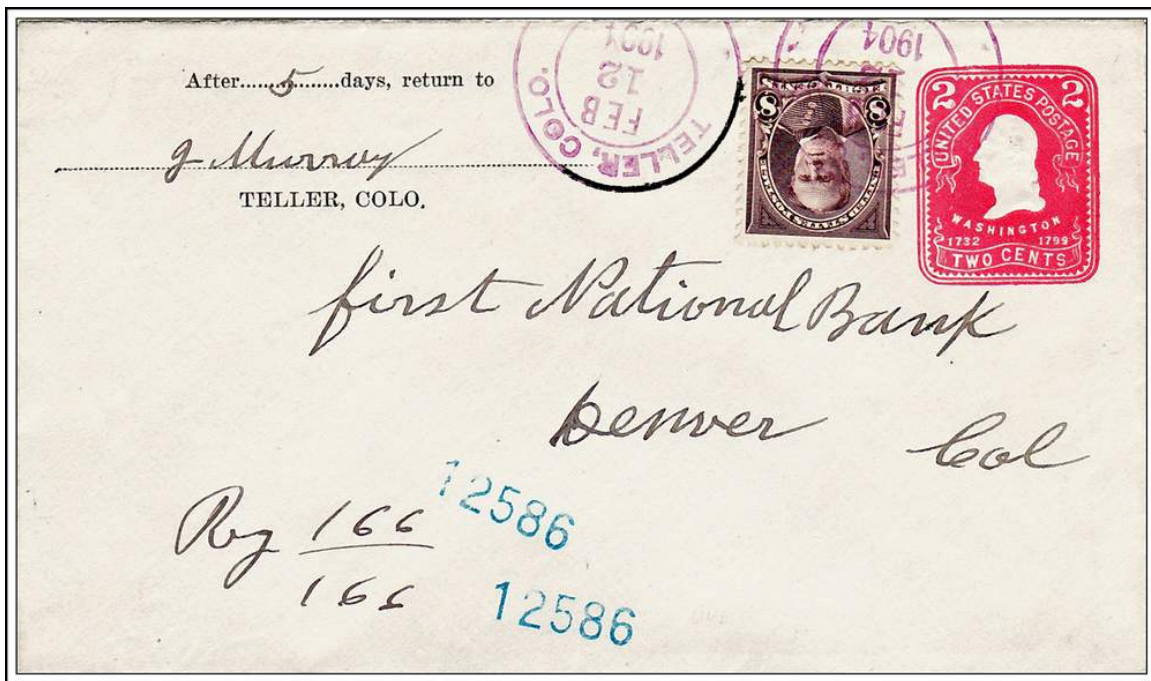 After.....5.....days, return to
J Murray
TELLER, COLO.
TELLER, COLO.
FEB
12
1904
1904
8 8
UNITED STATES POSTAGE
2 2
UNITED STATES POSTAGE
WASHINGTON
1732 1799
TWO CENTS
first National Bank
Denver Col
Reg 166
166
12586
12586